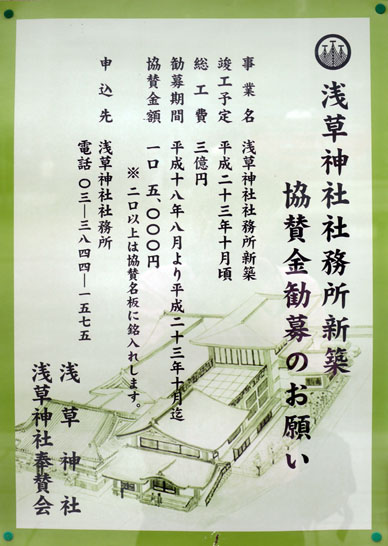 浅草神社社務所新築
協賛金勧募のお願い
事業名 浅草神社社務所新築
竣工予定 平成二十三年十月頃
総工費 三億円
勧募期間 平成十八年八月より平成二十三年十月迄
協賛金額 一口 五、〇〇〇円
※二口以上は協賛名板に銘入れします。
申込先 浅草神社社務所
電話〇三―三八四四―一五七五
浅草神社
浅草神社奉賛会